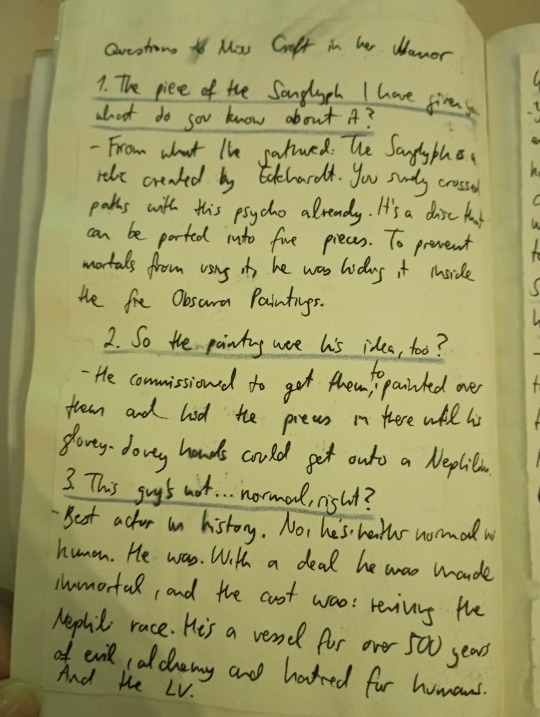 Questions to Miss Croft in her Manor
1. The piece of the Sanglyph I have given you
what do you know about it?
- From what I've gathered: The Sanglyph is a
relic created by Eckhardt. You surely crossed
paths with this psycho already. It's a disc that
can be parted into five pieces. To prevent
mortals from using it, he was hiding it inside
the five Obscura Paintings.
2. So the painting were his idea, too?
- He commissioned to get them, to painted over
them and hid the pieces in there until his
glovey-dovey hands could get onto a Nephilim.
3. This guy's not... normal, right?
- Best actor in history. No, he's neither normal
human. He was. With a deal he was made
immortal, and the cost was: reviving the
Nephili race. He's a vessel for over 500 years
of evil, alchemy and hatred for humans.
And the LV.